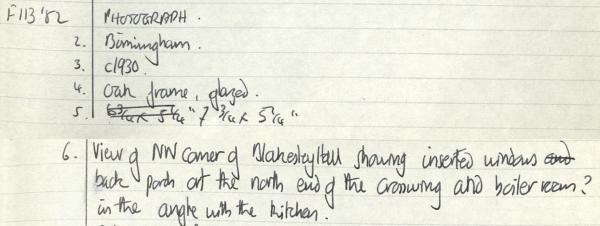 F113'82 PHOTOGRAPH.
2. Birmingham.
3. c1930.
4. Oak frame, glazed.
5. 6 3/4 x 5 1/4" 7 3/4 x 5 3/4"
6. View of NW corner of Blakesley Hall showing inserted windows and
back porch at the north end of the crosswing and boiler room?
in the angle with the kitchen.